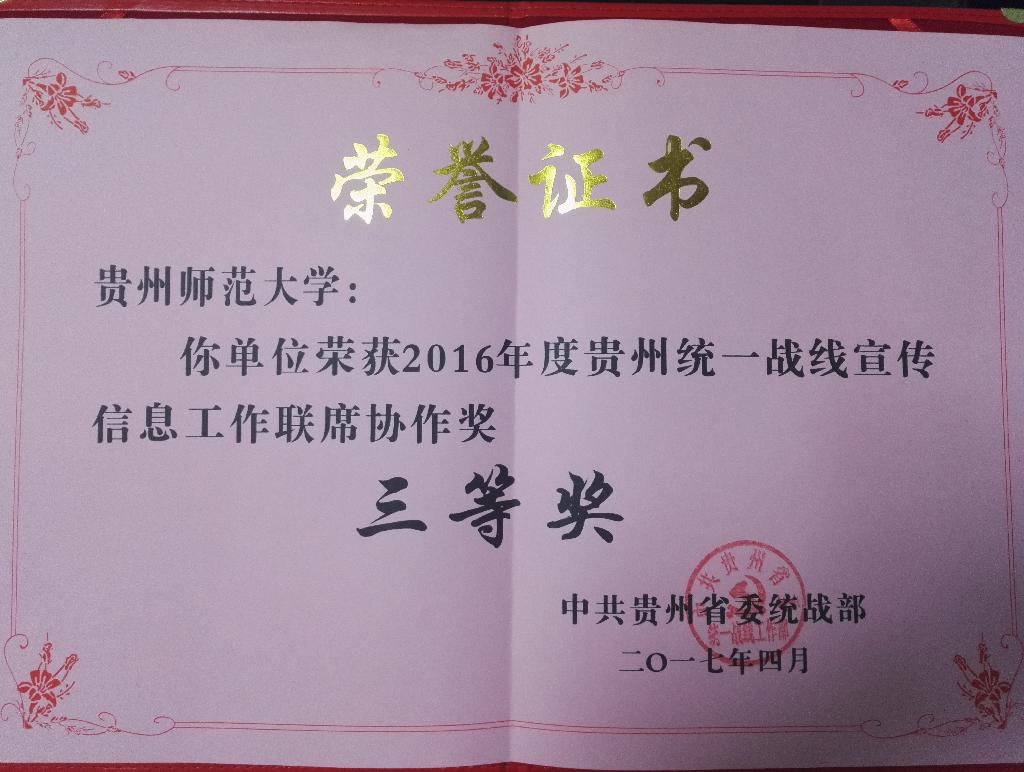 荣誉证书
贵州师范大学：
你单位荣获2016年度贵州统一战线宣传
信息工作联席协作奖
三等奖
中共贵州省委统战部
二〇一七年四月
中共贵州省
统一战线工作部